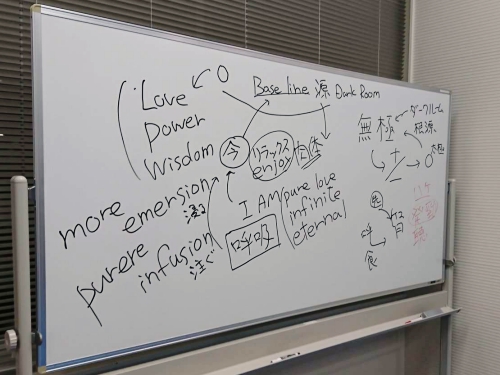 Love
Power
Wisdom
O
Base line 源 Dark Room
今
リラックス
enjoy
more emersion
purere infusion
注ぐ
I AM
pure love
infinite
eternal
呼吸
ダークルーム
根源
無極
太極
+
-
O
呼
食